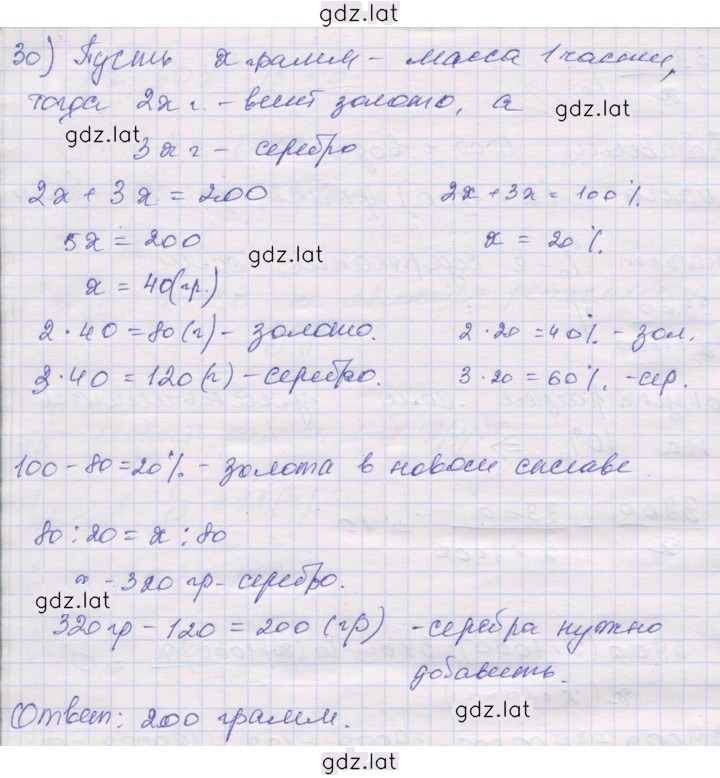 gdz.lat
30) Пусть x грамм - масса 1 части,
тогда 2x г. - весит золото, а
gdz.lat
gdz.lat
3x г - серебро
2x + 3x = 200
2x + 3x = 100%.
5x = 200
x = 20%.
gdz.lat
x = 40(гр.)
2 · 40 = 80(г) - золото.
2 · 20 = 40% - зол.
3 · 40 = 120(г) - серебро.
3 · 20 = 60%. - сер.
100 - 80 = 20% - золота в новом сплаве.
80 : 20 = x : 80
x - 320 гр - серебро.
gdz.lat
320 гр - 120 = 200 (гр) - серебра нужно
добавить.
Ответ: 200 грамм.
gdz.lat
gdz.lat